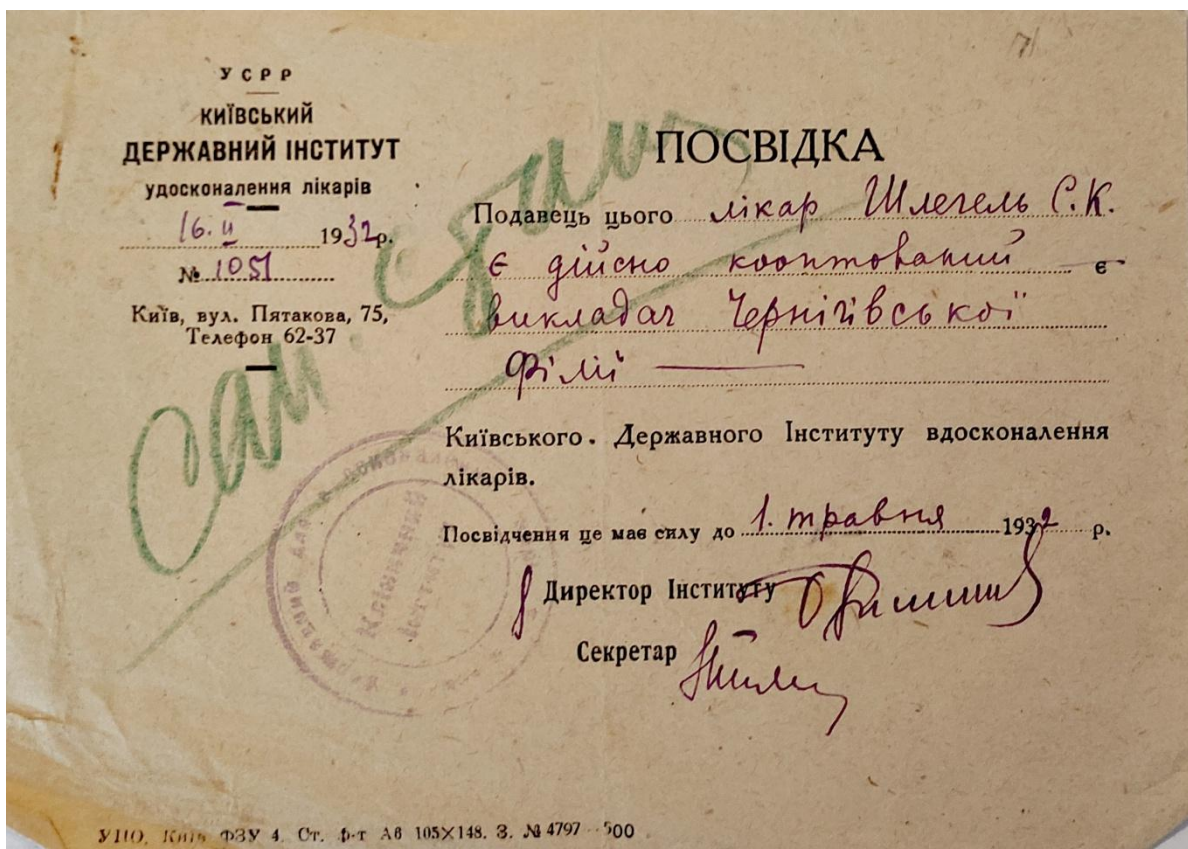 УСРР
КИЇВСЬКИЙ
ДЕРЖАВНИЙ ІНСТИТУТ
удосконалення лікарів
16. II 1932р.
№ 1051
Київ, вул. Пятакова, 75,
Телефон 62-37
ПОСВІДКА
Подавець цього лікар Шлегель С.К.
є дійсно кооптований є
викладач Чернігівської
Філії
Київського. Державного Інституту вдосконалення
лікарів.
Посвідчення це має силу до 1. травня 1932 р.
Директор Інституту
Секретар
Клінічний
УПО, Київ ФЗУ 4. Ст. ф-т А6 105×148. З. № 4797 - 500